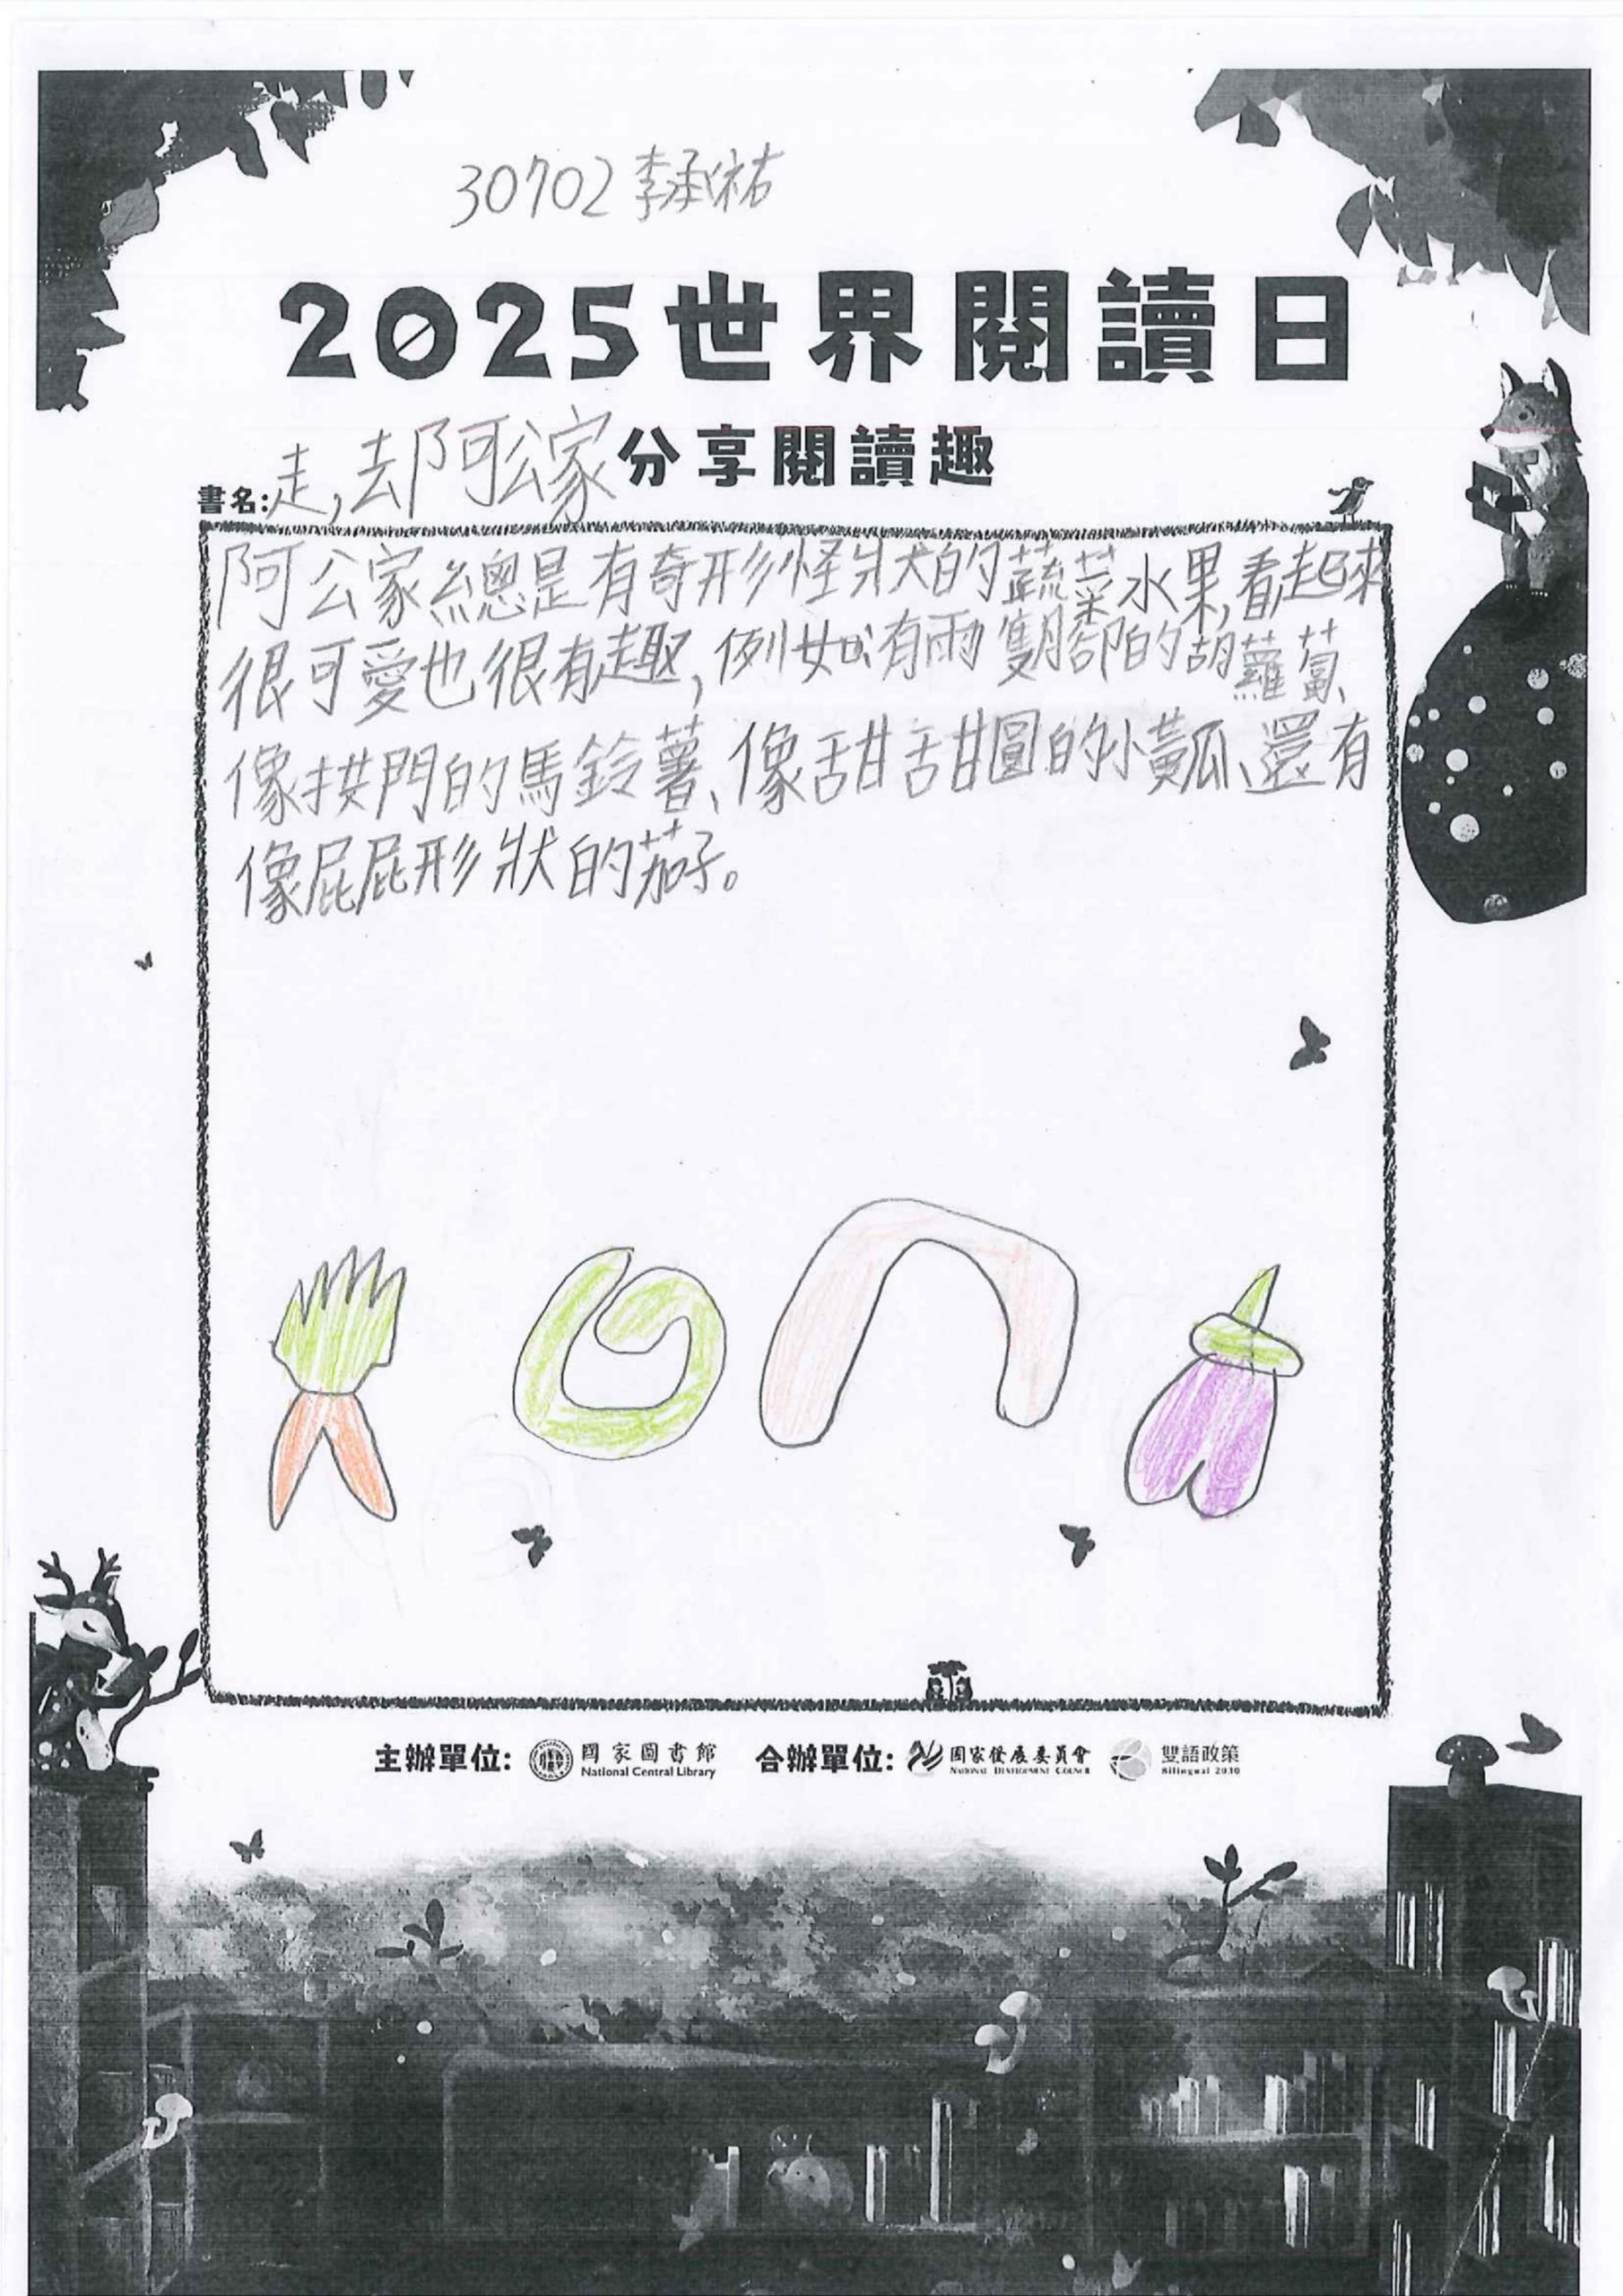 30702 李承祐
2025世界閱讀日
分享閱讀趣
書名:走,去阿公家
阿公家總是有奇形怪狀的蔬菜水果,看起來
很可愛也很有趣,例如:有兩隻腳的胡蘿蔔、
像拱門的馬鈴薯、像甜甜圈的小黃瓜、還有
像屁屁形狀的茄子。
主辦單位: 國家圖書館 National Central Library 合辦單位: 國家發展委員會 NATIONAL DEVELOPMENT COUNCIL 雙語政策 Bilingual 2030